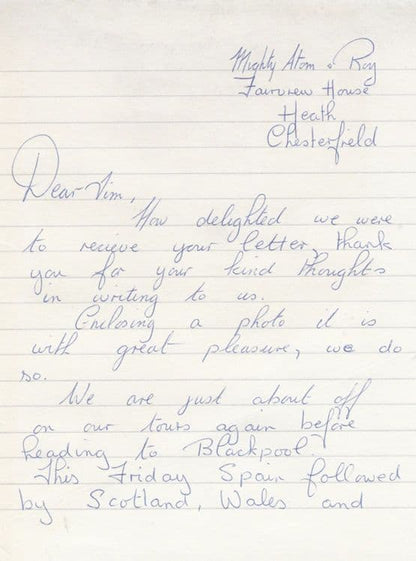 Mighty Atom & Roy
Fairview House
Heath
Chesterfield
Dear Vim,
How delighted we were
to recieve your letter, thank
you for your kind thoughts
in writing to us.
Enclosing a photo it is
with great pleasure, we do
so.
We are just about off
on our tours again before
heading to Blackpool.
This Friday Spain followed
by Scotland, Wales and